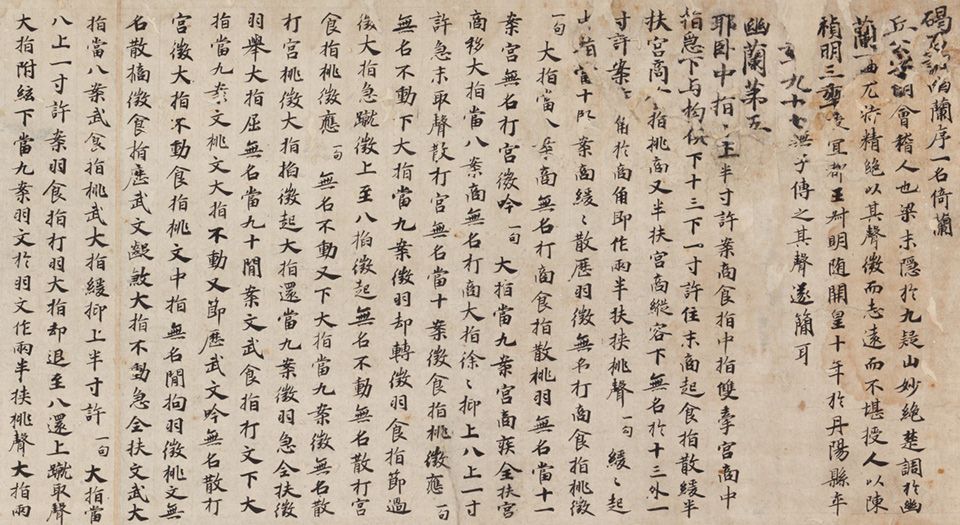 碣石調幽蘭序一名倚蘭
丘公字明會稽人也梁末隱於九疑山妙絕楚調於幽
蘭一曲尤特精絕以其聲微而志遠而不堪授人以陳
禎明三年授宜都王叔明隨開皇十年於丹陽縣卒
年九十七無子傳之其聲遂簡耳
幽蘭第五
耶卧中指十上半寸許案商食指中指雙牽宮商中
指急下與拘俱下十三下一寸許住末商起食指散緩半
扶宮商食指挑商又半扶宮商縱容下無名於十三外一
寸許案商角於商角即作兩半扶挾挑聲 一句 緩〻起
指當十案商緩〻散歷羽徵無名打商食指挑徵
一句 大指當八案商無名打商食指散挑羽 一句 無名當十一
案宮無名打宮徵吟 一句 大指當九案宮商疾全扶宮
商移大指當八案商無名打商大指徐〻抑上八上一寸
許急末取聲散打宮無名當十案徵食指挑徵應 一句
無名不動下大指當九案徵羽却轉徵羽食指節過
徵大指急蹴徵上至八抬徵起無名不動無名散打宮
食指挑徵應 一句 無名不動又下大指當九案徵無名散
打宮桃徵大指掐徵起大指還當九案徵羽急全扶徵
羽舉大指屈無名當九十間案文武食指打文下大
指當九案文桃文大指不動又節歷武文吟無名散打
宮徵大指不動食指桃文中指無名間拘羽徵桃文無
名散摘徵食指歷武文齪煞大指不動急全扶文武大
指當八案武食指桃武大指緩抑上半寸許 一句 大指當
八上一寸許案羽食指打羽大指却退至八還上蹴取聲
大指附絃下當九案羽文於羽文作兩半扶桃聲大指兩